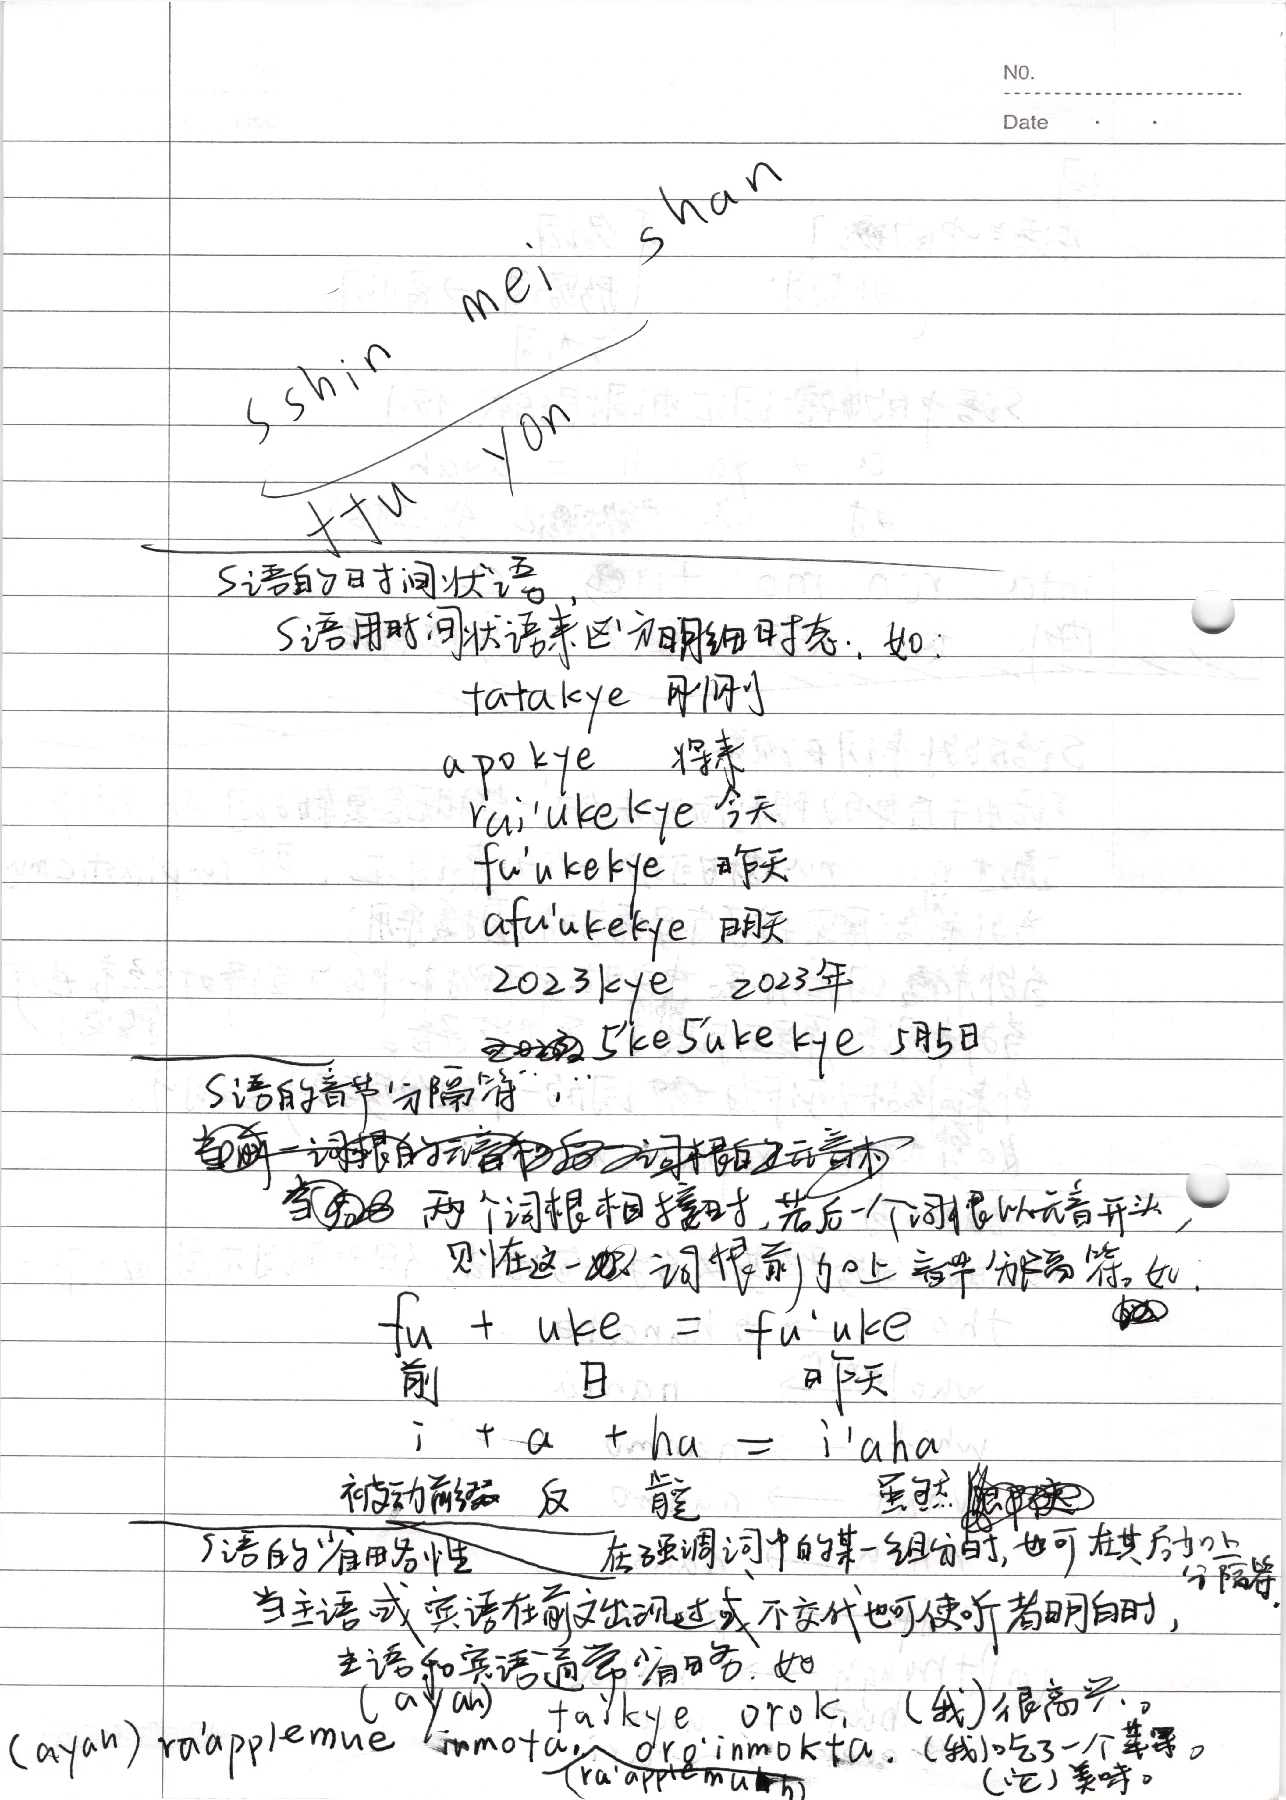 NO.
Date
sshin mei shan
ttu yon
S语的时间状语,
S语用时间状语来区分明细时态., 如:
tatakye 刚刚
apokye 将来
rai'ukekye 今天
fu'ukekye 昨天
afu'ukekye 明天
2023kye 2023年
5'ke5'ukekye 5月5日
S语的音节分隔符:
当前一词根的元音和后一词根的元音相
当 两个词根相接时,若后一个词根以元音开头,
则在这一词根前加上音节分隔符。如:
fu + uke = fu'uke
前 日 昨天
i + a + ha = i'aha
被动前缀 反 肯定 虽然
S语的省略性
在强调词中的某一组分时,也可在其后加上
分隔符.
当主语或宾语在前文出现过或不交代也可使听者明白时,
主语和宾语通常省略.如
(ayah) taikye orok. (我)很高兴.。
(ayah) ra'applemue inmota. oro'inmokta. (我)吃了一个苹果。
(ra'applemuh) (它)美味。